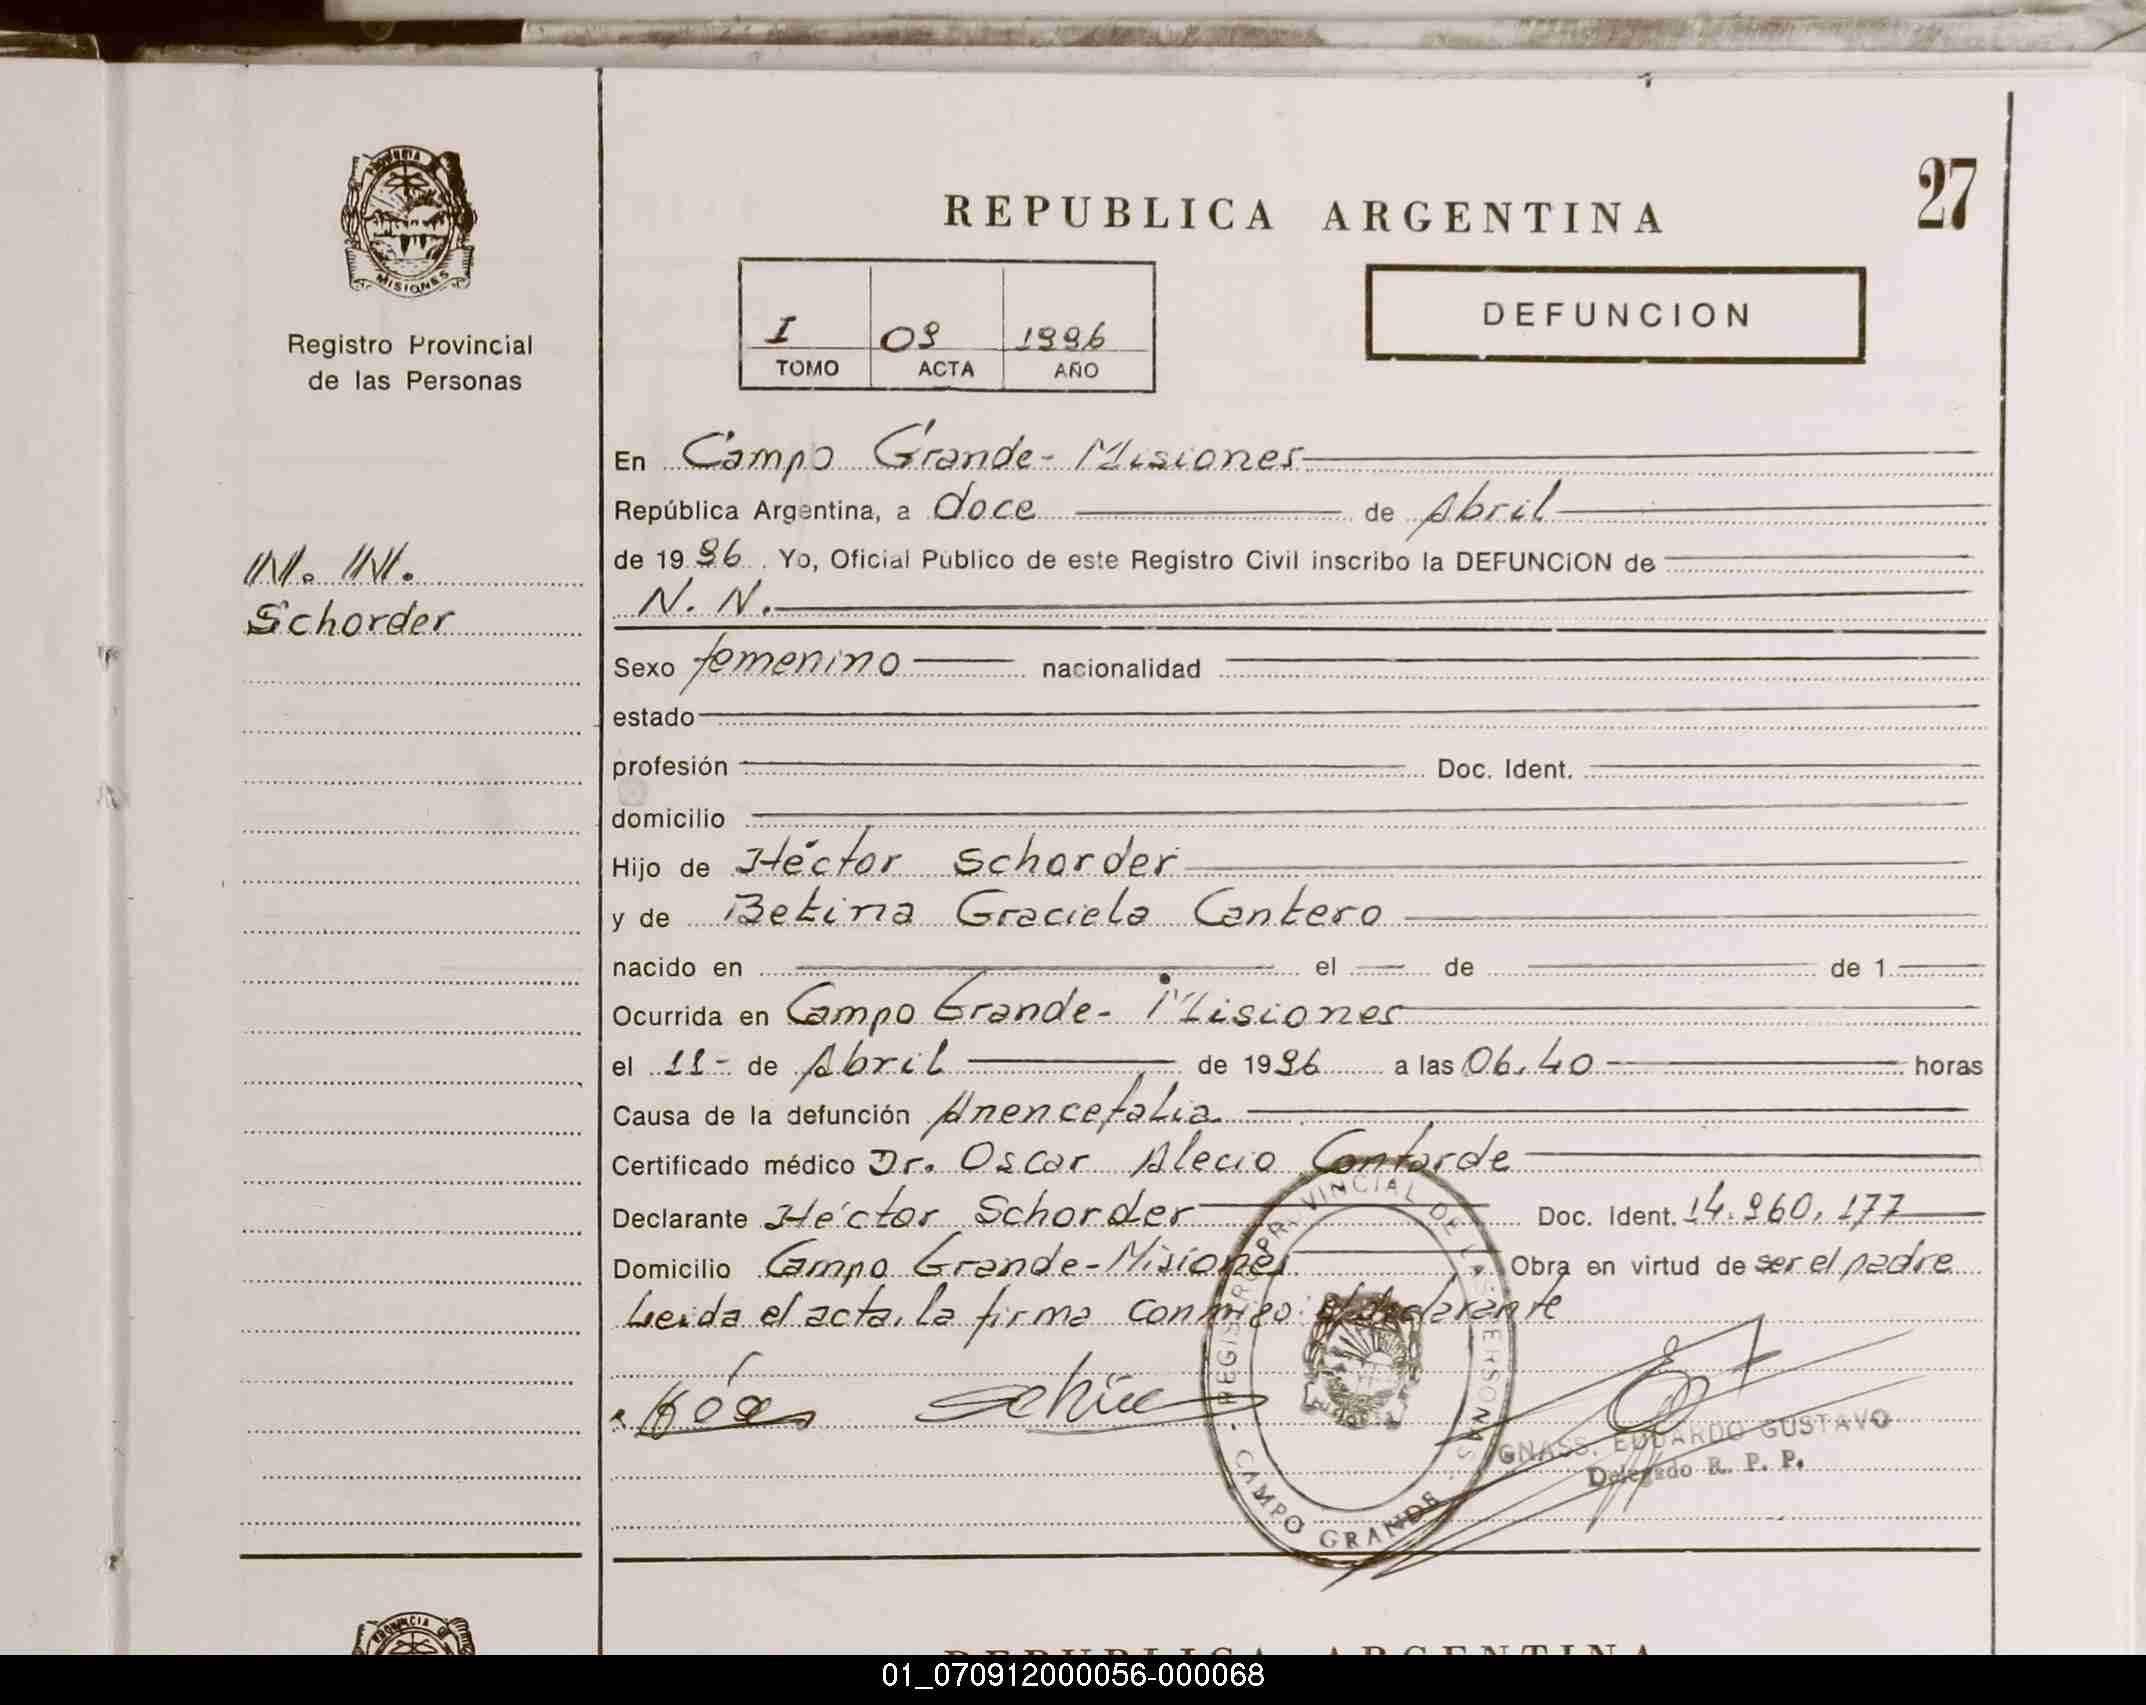 27
PROVINCIA DE
MISIONES
Registro Provincial
de las Personas
N. N.
Schorder
REPUBLICA ARGENTINA
DEFUNCION
I 09 1996
TOMO ACTA AÑO
En Campo Grande - Misiones
República Argentina, a doce de Abril
de 1996. Yo, Oficial Público de este Registro Civil inscribo la DEFUNCION de
N. N.
Sexo femenino nacionalidad
estado
profesión Doc. Ident.
domicilio
Hijo de Héctor Schorder
y de Betina Graciela Cantero
nacido en el de de 1
Ocurrida en Campo Grande - Misiones
el 11- de Abril de 1996 a las 06,40 horas
Causa de la defunción Anencefalia
Certificado médico Dr. Oscar Alecio Contarde
Declarante Héctor Schorder Doc. Ident. 14.960.177
Domicilio Campo Grande - Misiones Obra en virtud de ser el padre
Leida el acta, la firma conmigo el declarante
REGISTRO PROVINCIAL DE LAS PERSONAS
CAMPO GRANDE
GNASS, EDUARDO GUSTAVO
Delegado R. P. P.
PROVINCIA
REPUBLICA ARGENTINA
01_070912000056-000068